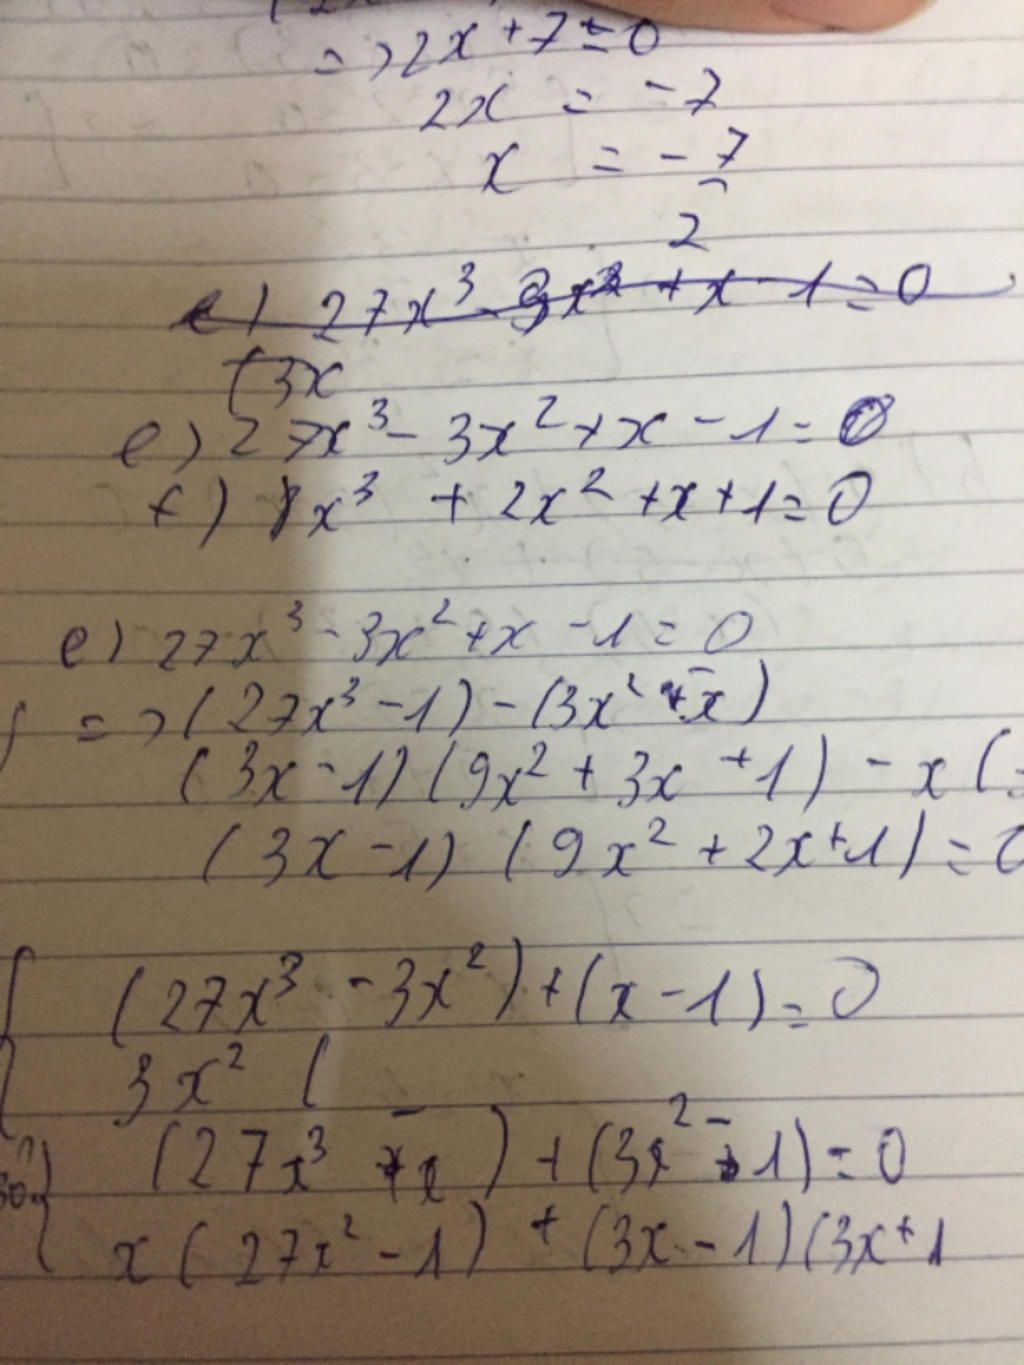 => 2x + 7 = 0
2x = -7
x = -7
2
e) 27x³ - 3x² + x - 1 = 0
(3x
e) 27x³ - 3x² + x - 1 = 0
f) 8x³ + 2x² + x + 1 = 0
e) 27x³ - 3x² + x - 1 = 0
=> (27x³ - 1) - (3x² - x)
(3x - 1)(9x² + 3x + 1) - x(
(3x - 1) (9x² + 2x + 1) = 0
(27x³ - 3x²) + (x - 1) = 0
3x² (
(27x³ - x) + (3x² - 1) = 0
x(27x² - 1) + (3x - 1)(3x + 1